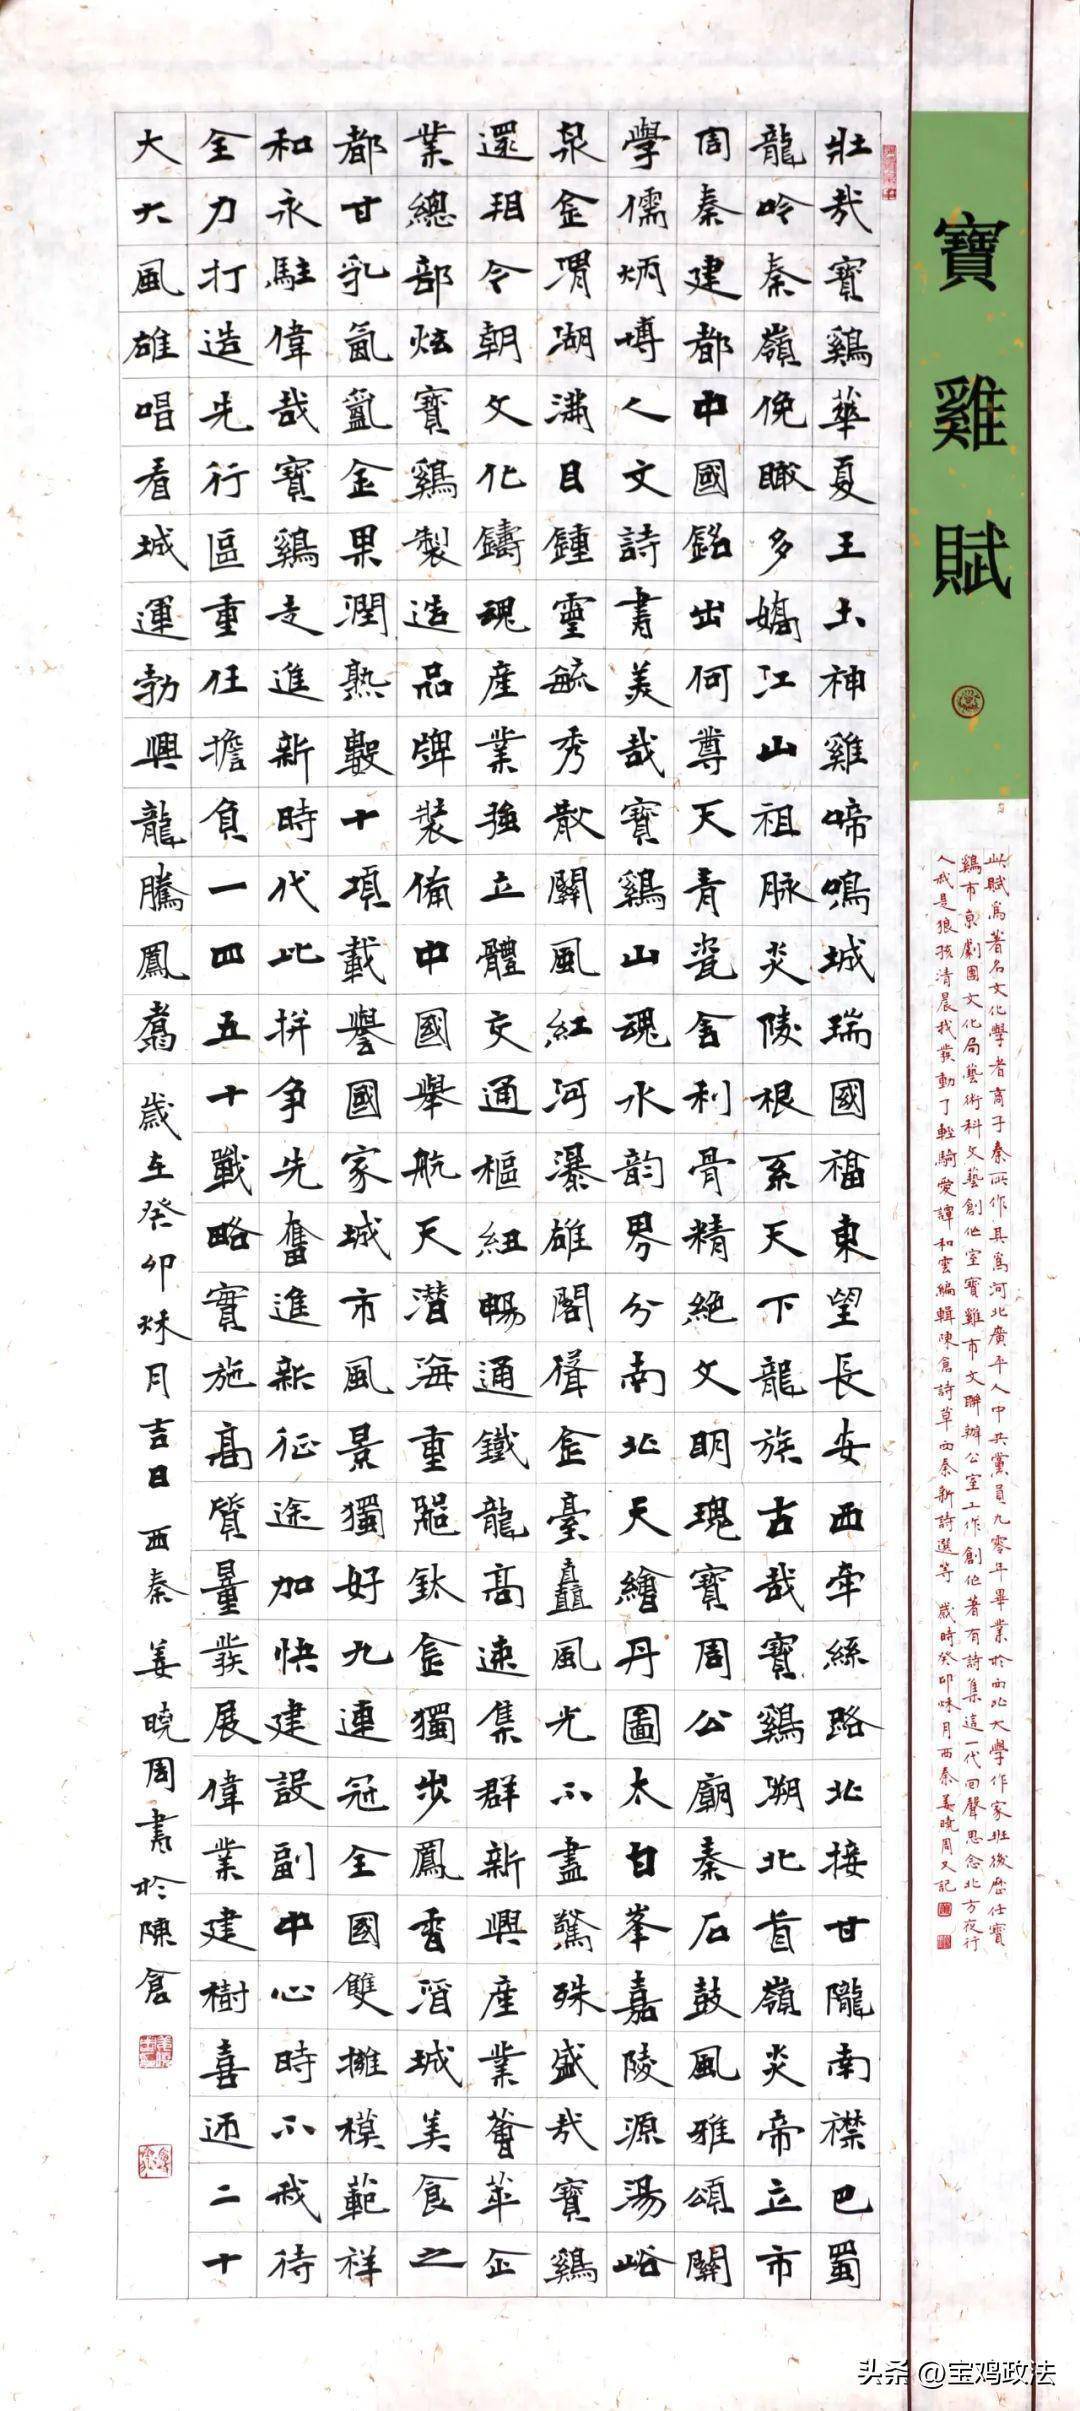 寶雞賦
此賦爲著名文化學者商子秦所作其爲河北廣平人中共黨員九零年畢業於西北大學作家班後歷任寶
鷄市京劇團文化局藝術科文藝創作室寶雞市文聯辦公室工作創作著有詩集這一代回聲思念北方夜行
人我是狼孩清晨我發動了輕騎愛譚和雲編輯陳倉詩草西秦新詩選等 歲時癸卯秌月西秦姜曉周又記
壯哉寶鷄華夏王土神雞啼鳴城瑞國福東望長安西牽絲路北接甘隴南襟巴蜀
龍吟秦嶺俛瞰多嬌江山祖脉炎陵根系天下龍族古哉寶鷄溯北首嶺炎帝立市
周秦建都中國銘出何尊天青瓷舍利骨精絕文明瑰寶周公廟秦石鼓風雅頌關
學儒炳博人文詩書美哉寶鷄山魂水韵界分南北天繪丹圖太白峯嘉陵源湯峪
泉金渭湖滿目鍾靈毓秀散關風紅河瀑雄閣聳金臺矗風光不盡驚殊盛哉寶鷄
還看今朝文化鑄魂產業強立體交通樞紐暢通鐵龍高速集群新興產業薈萃企
業總部炫寶鷄製造品牌裝備中國舉航天潛海重器鈦金獨步鳳香酒城美食之
都甘乳氤氳金果潤熟數十項載譽國家城市風景獨好九連冠全國雙擁模範祥
和永駐偉哉寶鷄走進新時代此拼争先奮進新征途加快建設副中心時不我待
全力打造先行區重任擔負一四五十戰略實施高質量發展偉業建樹喜迎二十
大大風雄唱看城運勃興龍騰鳳翥 歲在癸卯秌月吉日 西秦 姜曉周書於陳倉
头条 @宝鸡政法